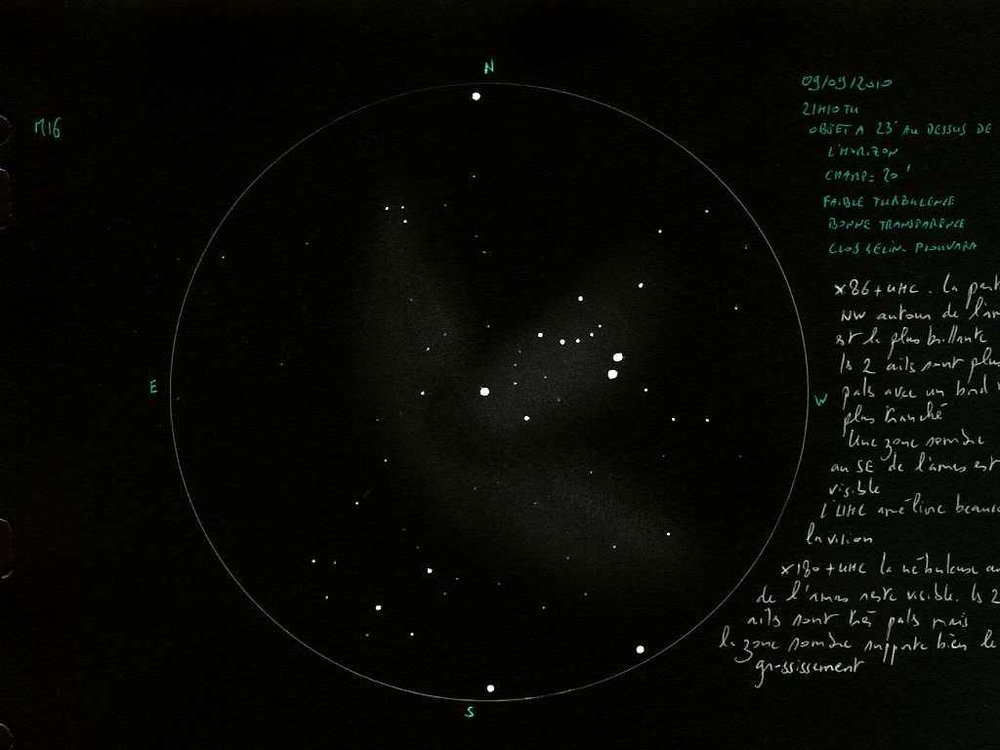 N
M16
E
W
S
09/09/2010
21H10 TU
OBJET A 23° AU DESSUS DE
L'HORIZON
CHAMP= 20'
FAIBLE TURBULENCE
BONNE TRANSPARENCE
CLOS
x86 + UHC. la part
NW autour de l'am
est la plus brillante
ls 2 ailes sont plus
pals avec un bord
plus tranché
Une zone sombre
au SE de l'amas est
visible
l'UHC améliore beauco
la vision
x180 + UHC la nébuleuse au
de l'amas reste visible. ls 2
ails sont très pals mais
la zone sombre supporte bien le
grossissement